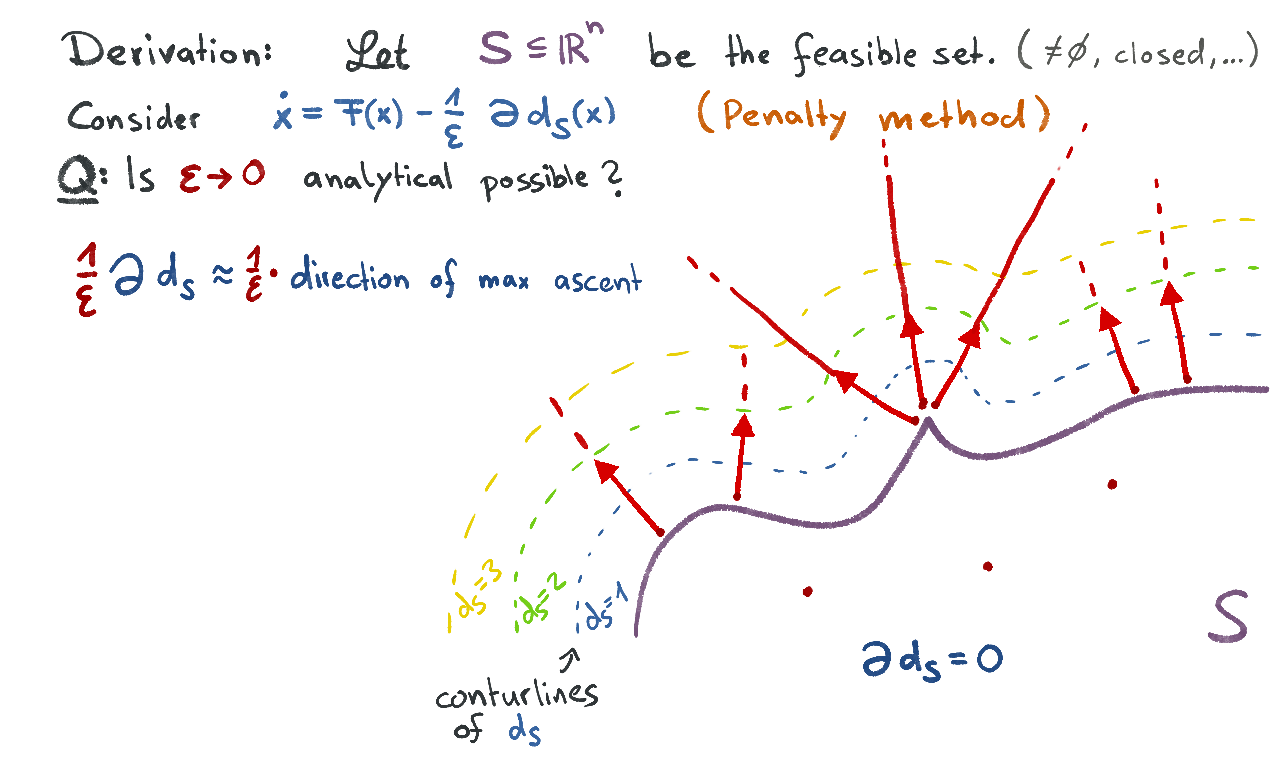 Derivation: Let S ⊆ ℝⁿ be the feasible set. (≠∅, closed,...)
Consider ẋ = F(x) - 1/ε ∂ds(x) (Penalty method)
Q: Is ε→0 analytical possible?
1/ε ∂ds ≈ 1/ε · direction of max ascent
ds=3
ds=2
ds=1
S
∂ds=0
conturlines
of ds